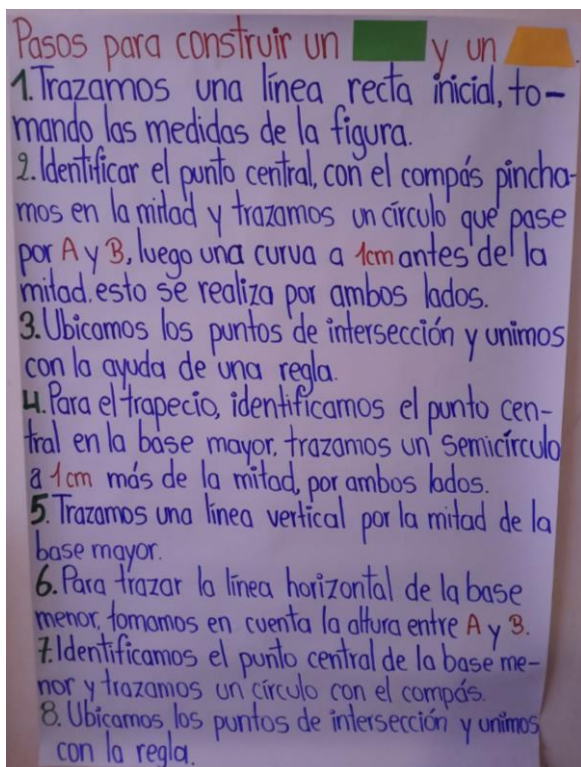 Pasos para construir un y un .
1. Trazamos una línea recta inicial, to-
mando las medidas de la figura.
2. Identificar el punto central, con el compás pincha-
mos en la mitad y trazamos un círculo que pase
por A y B, luego una curva a 1cm antes de la
mitad. esto se realiza por ambos lados.
3. Ubicamos los puntos de intersección y unimos
con la ayuda de una regla.
4. Para el trapecio, identificamos el punto cen-
tral en la base mayor, trazamos un semicírculo
a 1cm más de la mitad, por ambos lados.
5. Trazamos una línea vertical por la mitad de la
base mayor.
6. Para trazar la línea horizontal de la base
menor, tomamos en cuenta la altura entre A y B.
7. Identificamos el punto central de la base me-
nor y trazamos un círculo con el compás.
8. Ubicamos los puntos de intersección y unimos
con la regla.